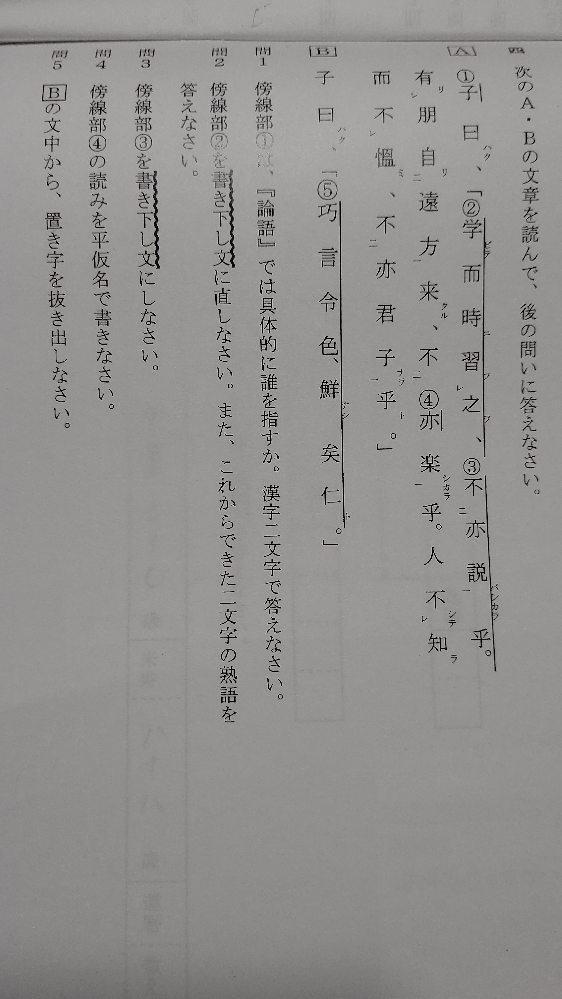 四 次のA・Bの文章を読んで、後の問いに答えなさい。
A
①子曰ハク、「②学ビテ而時ニ習フレ之ヲ、③不二亦説バシカラ一乎。
有リレ朋自リ二遠方一来タル、不二④亦楽シカラ一乎。人不シテレ知ラ
而不レ慍ミ、不二亦君子ナラ一乎ト。」
B
子曰ハク、「⑤巧言令色、鮮ナシ矣仁ト。」
問1 傍線部①は、『論語』では具体的に誰を指すか。漢字二文字で答えなさい。
問2 傍線部②を書き下し文に直しなさい。また、これからできた二文字の熟語を
答えなさい。
問3 傍線部③を書き下し文にしなさい。
問4 傍線部④の読みを平仮名で書きなさい。
問5 Bの文中から、置き字を抜き出しなさい。